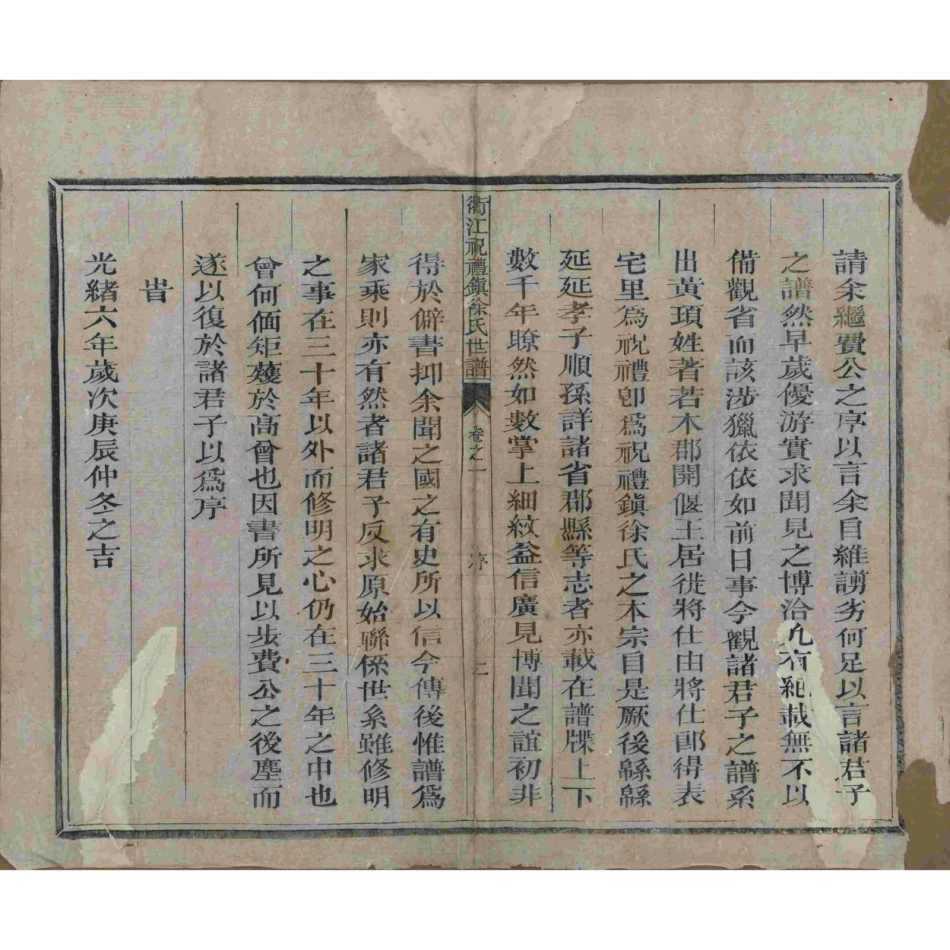 請余繼費公之序以言余自維謭劣何足以言諸君子
之譜然早歲優游實求聞見之博洽凡有紀載無不以
備觀省而該涉獵依依如前日事今觀諸君子之譜系
出黃頊姓著若木郡開偃王居徙將仕由將仕郎得表
宅里為祝禮卽為祝禮鎮徐氏之本宗自是厥後緜緜
延延孝子順孫詳諸省郡縣等志者亦載在譜牒上下
數千年瞭然如數掌上細紋益信廣見博聞之誼初非
衢江祝禮鎮徐氏世譜 卷之一 序 二
得於僻書抑余聞之國之有史所以信今傳後惟譜為
家乘則亦有然者諸君子反求原始聯傺世系雖修明
之事在三十年以外而修明之心仍在三十年之中也
曾何偭矩蒦於高曾也因書所見以步費公之後塵而
遂以復於諸君子以為序
旹
光緒六年歲次庚辰仲冬之吉